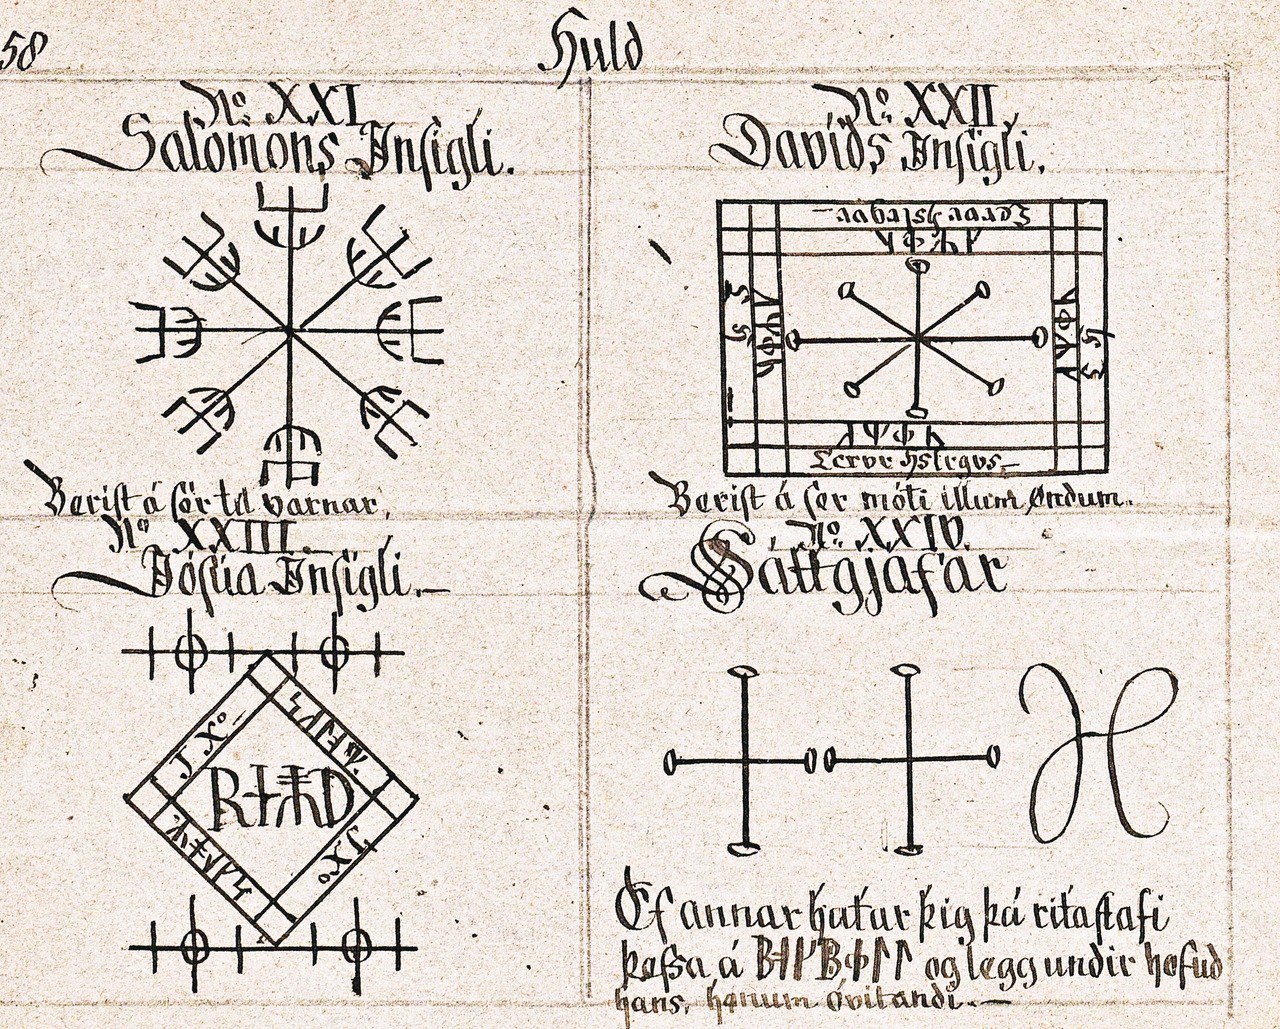 58
Huld
No. XXI.
Salómons Insigli.
Berist á sér til varnar.
No. XXII.
Davíðs Insigli.
Berist á ser móti illum öndum.
No XXIII.
Jósúa Insigli.—
No. XXIV.
Sáttgjafar
Ef annar hatar þig þá rita stafi
þessa á ᛒ og legg undir höfuð
hans, hönum óvitandi.—